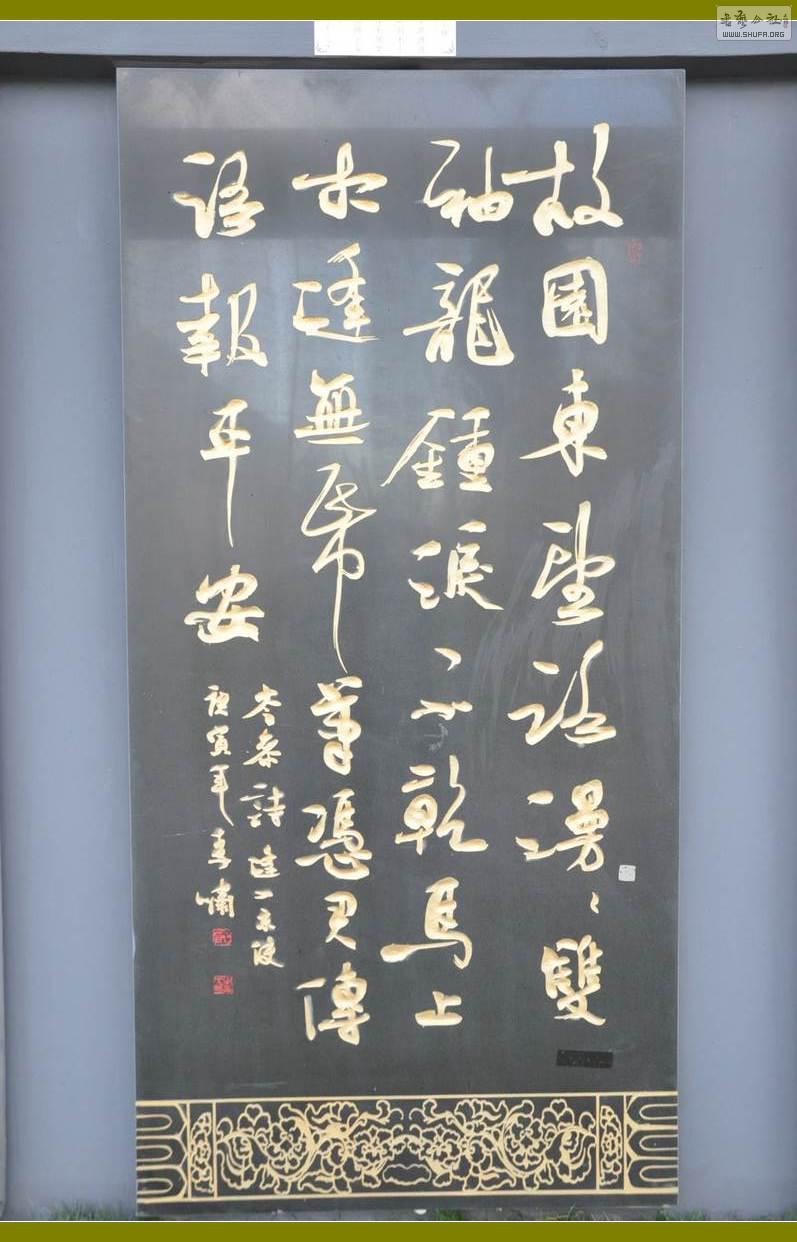 故園東望路漫〻雙
袖龍鍾淚不乾馬上
相逢無帋筆憑君傳
語報平安
岑參詩逢入京使
庚寅年李嘯
書藝公社
WWW.SHUFA.ORG